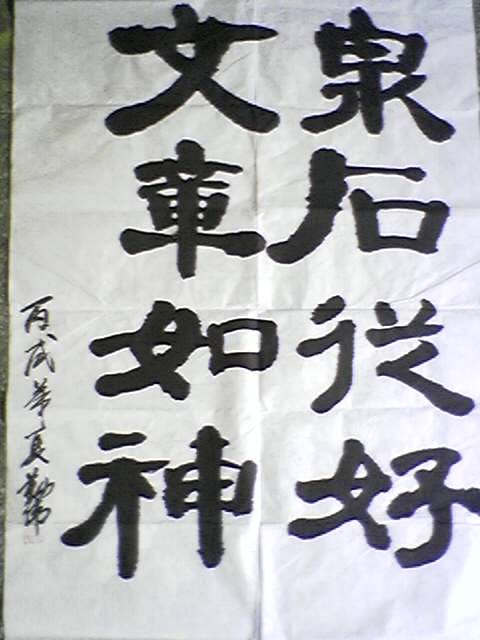 泉石従好
文章如神
丙戌年夏